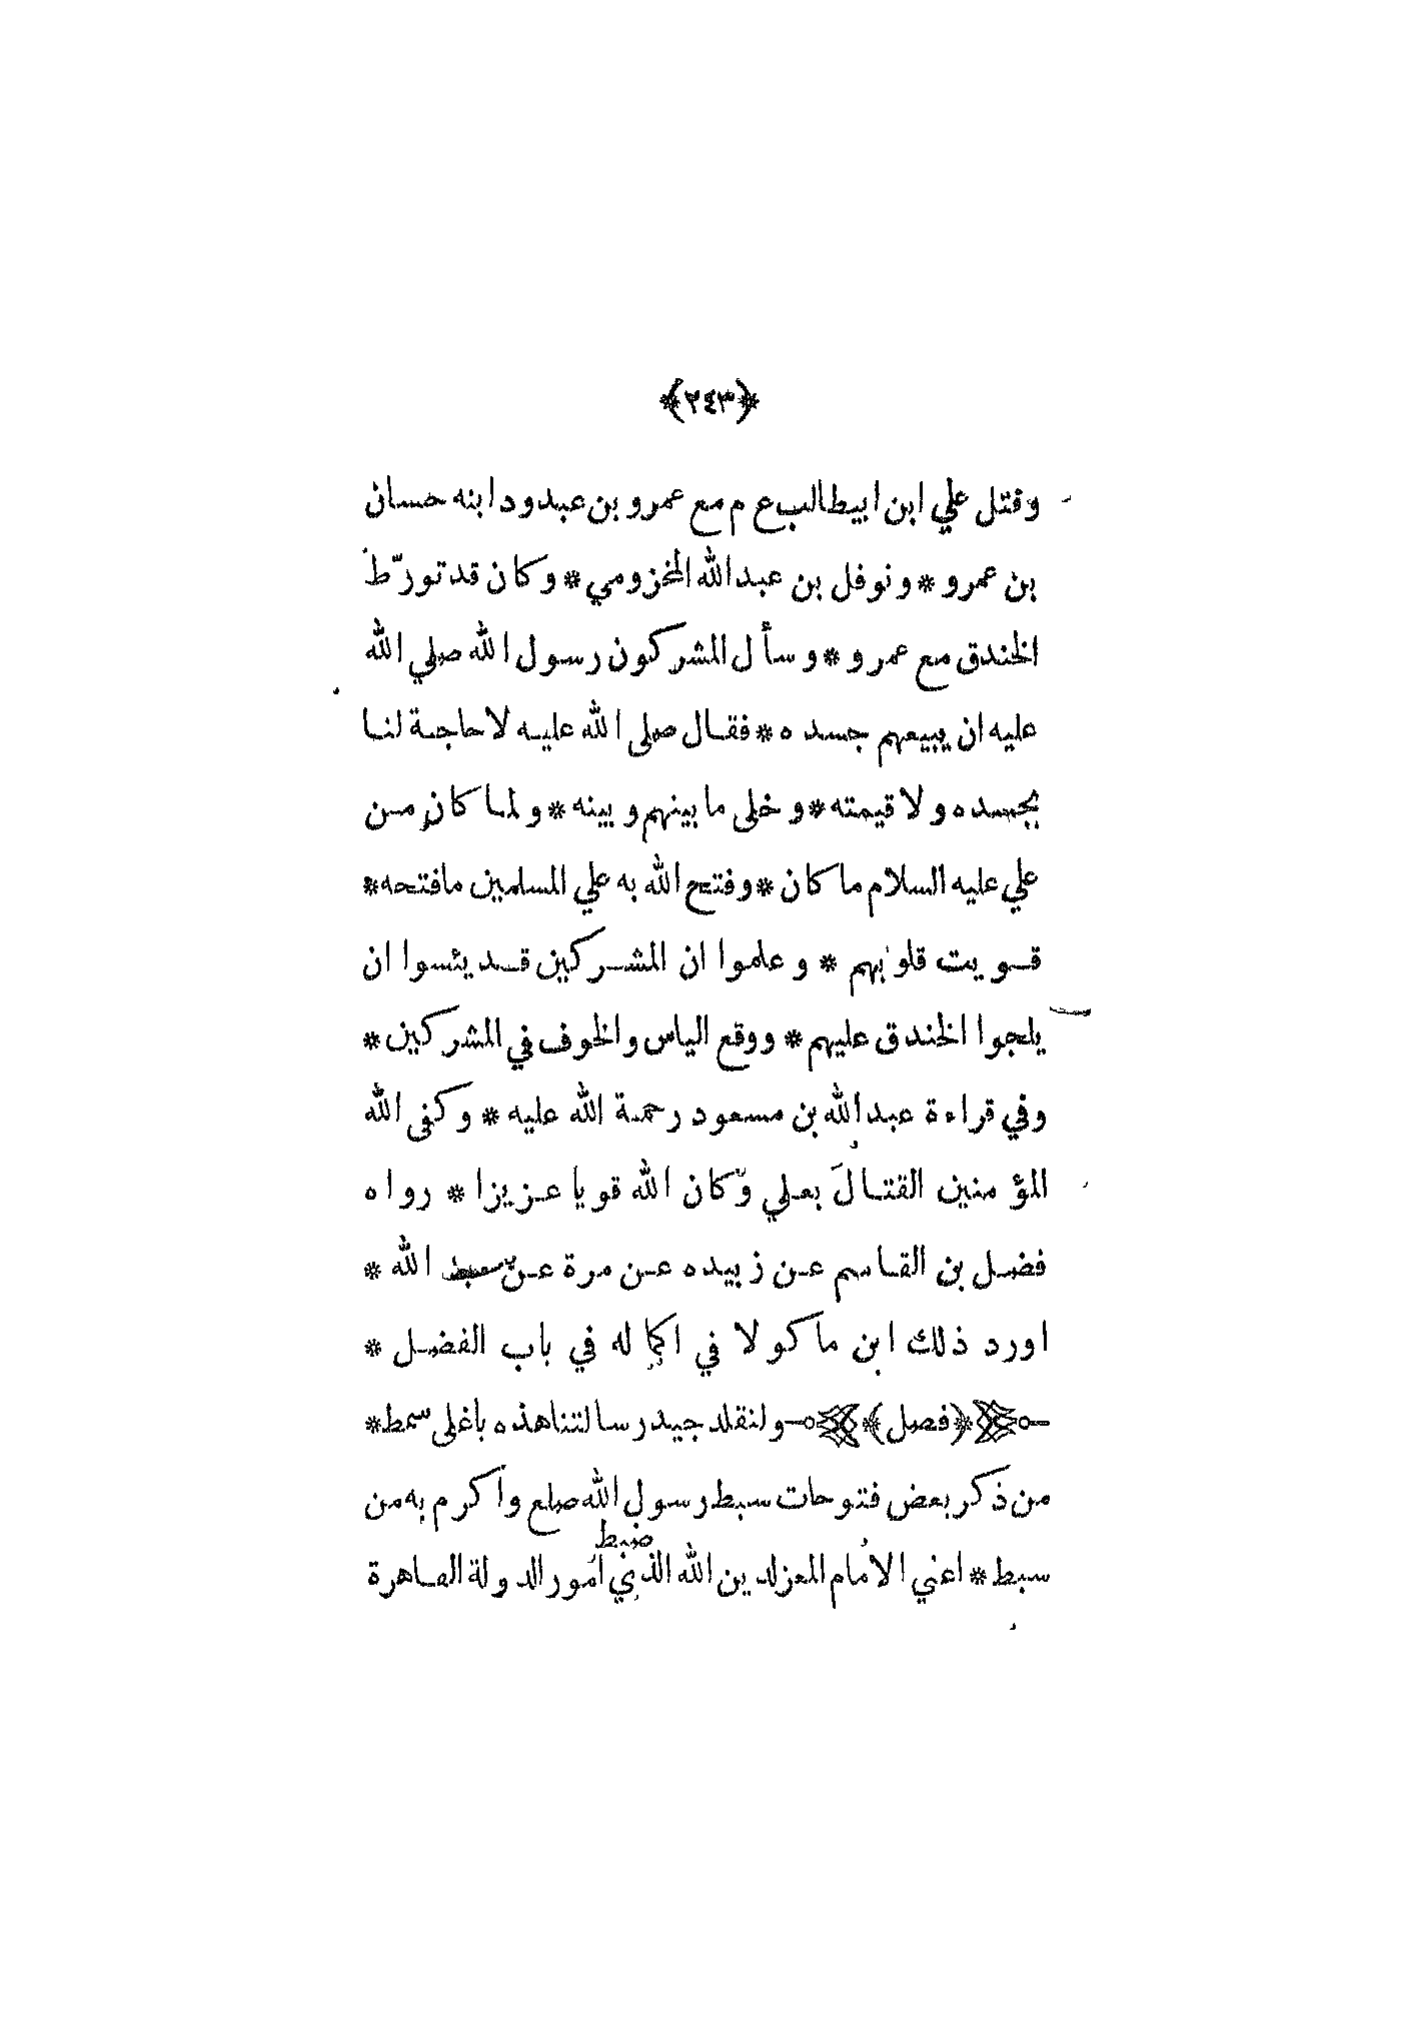 ﴿٢٤٣﴾
وقتل علي ابن ابيطالب ع م مع عمرو بن عبدود ابنه حسان
بن عمرو * ونوفل بن عبد الله المخزومي * وكان قد تورّط
الخندق مع عمرو * وسأل المشركون رسول الله صلي الله
عليه ان يبيعهم جسده * فقال صلى الله عليه لاحاجة لنا
بجسده ولا قيمته * وخلى ما بينهم وبينه * ولما كان من
علي عليه السلام ما كان * وفتح الله به علي المسلمين مافتحه *
قويت قلوبهم * وعلموا ان المشركين قد يئسوا ان
يلجوا الخندق عليهم * ووقع الياس والخوف في المشركين *
وفي قراءة عبد الله بن مسعود رحمة الله عليه * وكفى الله
المؤمنين القتالَ بعلي وّكان الله قويا عزيزا * رواه
فضل بن القاسم عن زبيده عن مرة عن الله *
اورد ذلك ابن ماكولا في اكماله في باب الفضل *
﴿فصل﴾ ولنقلد جيد رسالتنا هذه باغلى سمط *
من ذكر بعض فتوحات سبط رسول الله صلع واكرم به من
ضبط
سبط * اعني الامام المعز لدين الله الذي امور الدولة القاهرة